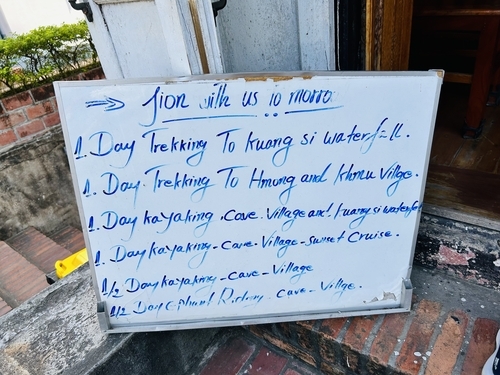 ⇒ Jion with us to morro
1. Day Trekking To kuang si waterfall.
1. Day. Trekking To Hmong and khmu Villge.
1. Day kayaking . Cave. Village and kuang si waterfall
1. Day kayaking - Cave - Village - Sunset Cruise.
1/2 Day kayaking - Cave - Village
1/2 Day Elphant Riding. Cave - Villge.